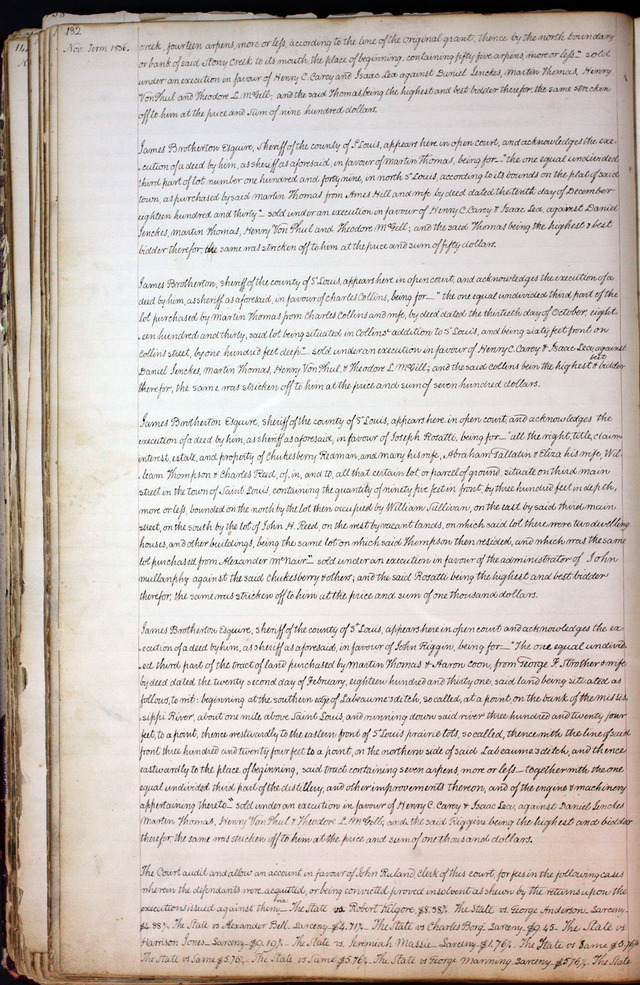 132
Nov. Term 1836.
creek, fourteen arpens, more or less, according to the line of the original grant, thence by the north boundary
or bank of said Stony Creek to its mouth, the place of beginning, containing fifty five arpens, more or less" sold
under an execution in favour of Henry C. Carey and Isaac Lea against Daniel Jenckes, Martin Thomas, Henry
Von Phul and Theodore L. McGill; and the said Thomas being the highest and best bidder therefor, the same stricken
off to him at the price and sum of nine hundred dollars.
James Brotherton Esquire, Sheriff of the county of St Louis, appears here in open court, and acknowledges the exe-
cution of a deed by him, as sheriff as aforesaid, in favour of Martin Thomas, being for "the one equal undivided
third part of lot number one hundred and forty nine, in north St Louis, according to its bounds on the plat of said
town, as purchased by said Martin Thomas from Ames Hill and wife by deed dated the tenth day of December
eighteen hundred and thirty" sold under an execution in favour of Henry C. Carey & Isaac Lea, against Daniel
Jenckes, Martin Thomas, Henry Von Phul and Theodore McGill; and the said Thomas being the highest & best
bidder therefor the same was stricken off to him at the price and sum of fifty dollars.
James Brotherton, sheriff of the county of St Louis, appears here in open court, and acknowledges the execution of a
deed by him, as sheriff as aforesaid, in favour of Charles Collins, being for "the one equal undivided third part of the
lot purchased by Martin Thomas from Charles Collins and wife, by deed dated the thirtieth day of October, eight-
een hundred and thirty, said lot being situated in Collins' addition to St Louis, and being sixty feet front on
Collins street, by one hundred feet deep" sold under an execution in favour of Henry C. Carey & Isaac Lea, against
Daniel Jenckes, Martin Thomas, Henry Von Phul, & Theodore L. McGill; and the said Collins bein the highest & best bidder
therefor, the same was stricken off to him at the price and sum of seven hundred dollars.
James Brotherton Esquire, sheriff of the county of St Louis, appears here in open court, and acknowledges the
execution of a deed by him, as sheriff as aforesaid, in favour of Joseph Rosatti, being for "all the right, title, claim
interest, estate, and property of Chukesberry Redman, and mary his wife, Abraham Gallatin & Eliza his wife, Wil-
liam Thompson & Charles Reed, of, in, and to, all that certain lot, or parcel of ground, situate on third main
street in the town of Saint Louis, containing the quantity of ninety five feet in front, by three hundred feet in depth,
more or less, bounded on the north by the lot then occupied by William Sullivan, on the east by said third main
street, on the south by the lot of John H. Reed, on the west by vacant lands, on which said lot there were two dwelling
houses, and other buildings, being the same lot on which said Thompson then resided, and which was the same
lot purchased from Alexander McNair" sold under an execution in favour of the administrator of John
mullanphy against the said Chukesberry & others; and the said Rosatti being the highest and best bidder
therefor, the same was stricken off to him at the price and sum of one thousand dollars.
James Brotherton Esquire, sheriff of the county of St Louis, appears here in open court and acknowledges the ex-
ecution of a deed by him, as sheriff as aforesaid, in favour of John Riggin, being for "The one equal undivid-
ed third part of the tract of land purchased by Martin Thomas & Aaron Coon, from George F. Strother & wife
by deed dated the twenty second day of February, eighteen hundred and thirty one, said land being situated as
follows, to wit: beginning at the southern edge of Labeaume's ditch, so called, at a point, on the bank of the missis-
sippi River, about one mile above Saint Louis, and running down said river three hundred and twenty four
feet, to a point, thence westwardly to the eastern front of St Louis prairie lots, so called, thence with the line of said
front three hundred and twenty four feet to a point, on the northern side of said Labeaume's ditch, and thence
eastwardly to the place of beginning, said tract containing seven arpens, more or less together with the one
equal undivided third part of the distillery, and other improvements thereon, and of the engine & machinery
appertaining thereto" sold under an execution in favour of Henry C. Carey & Isaac Lea, against Daniel Jenckes
Martin Thomas, Henry Von Phul & Theodore L. McGill; and the said Riggin being the highest and bidder
therefor, the same was stricken off to him at the price and sum of one thousand dollars.
The Court audit and allow an account in favour of John Ruland clerk of this court, for fees in the following cases
wherein the defendants were acquitted, or being convicted proved insolvent as shewn by the returns upon the
executions issued against them viz The State vs Robert Kilgore $8.58¾ The State vs. George Anderson Larceny
$4.88¾ The State vs Alexander Bell. Larceny $4.71¾ The State vs Charles Borg. Larceny $9.45. The State vs
Harrison Jones Larceny $9.19¾ The State vs. Jeremiah Massie Larceny $1.76¼ The State vs Same $5.76¼
The State vs Same $5.76¼ The State vs Same $5.76¼ The State vs George Manning Larceny $5.76¼ The State